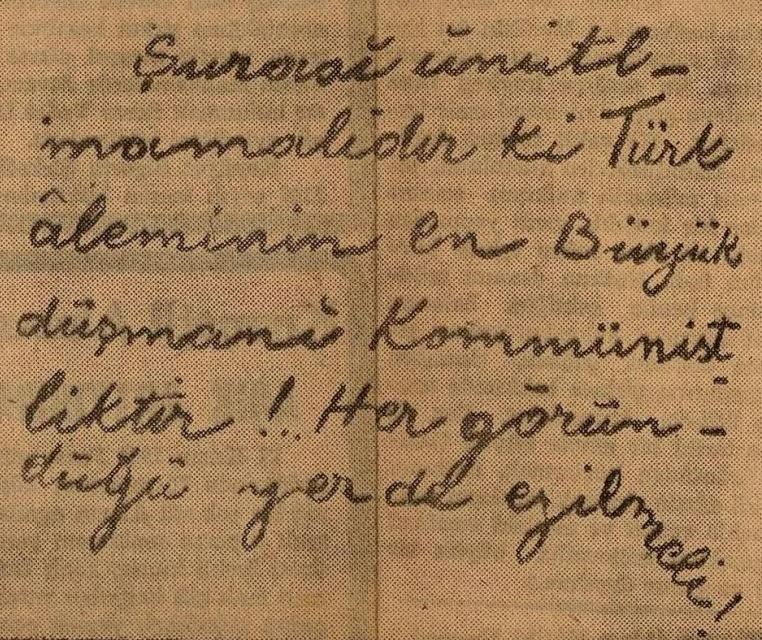 Şurası ünutl-
mamalıdır ki Türk
âleminin en Büyük
düşmanı Kommünist-
liktir!.. Her görün-
düğü yerde ezilmeli!